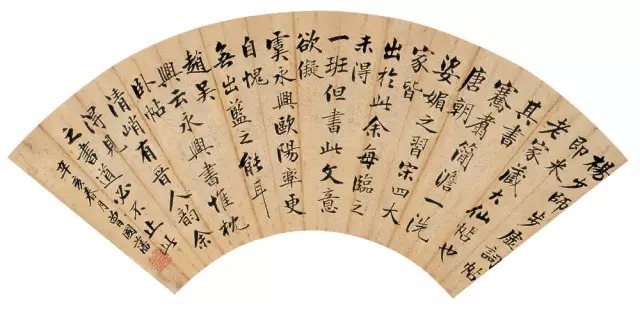 楊少師步虛詞帖
即老米
家藏大仙帖也
其書
騫翥簡澹一洗
唐朝
姿媚之習宋四大
家皆
出於此余每臨之
未得
一班但書此文意
欲儗
虞永興歐陽率更
自愧
無出藍之能耳
趙吳
興云永興書惟枕
臥帖
清峭有晉人韻余
得見道必不止此
之書
辛亥春月曾國藩